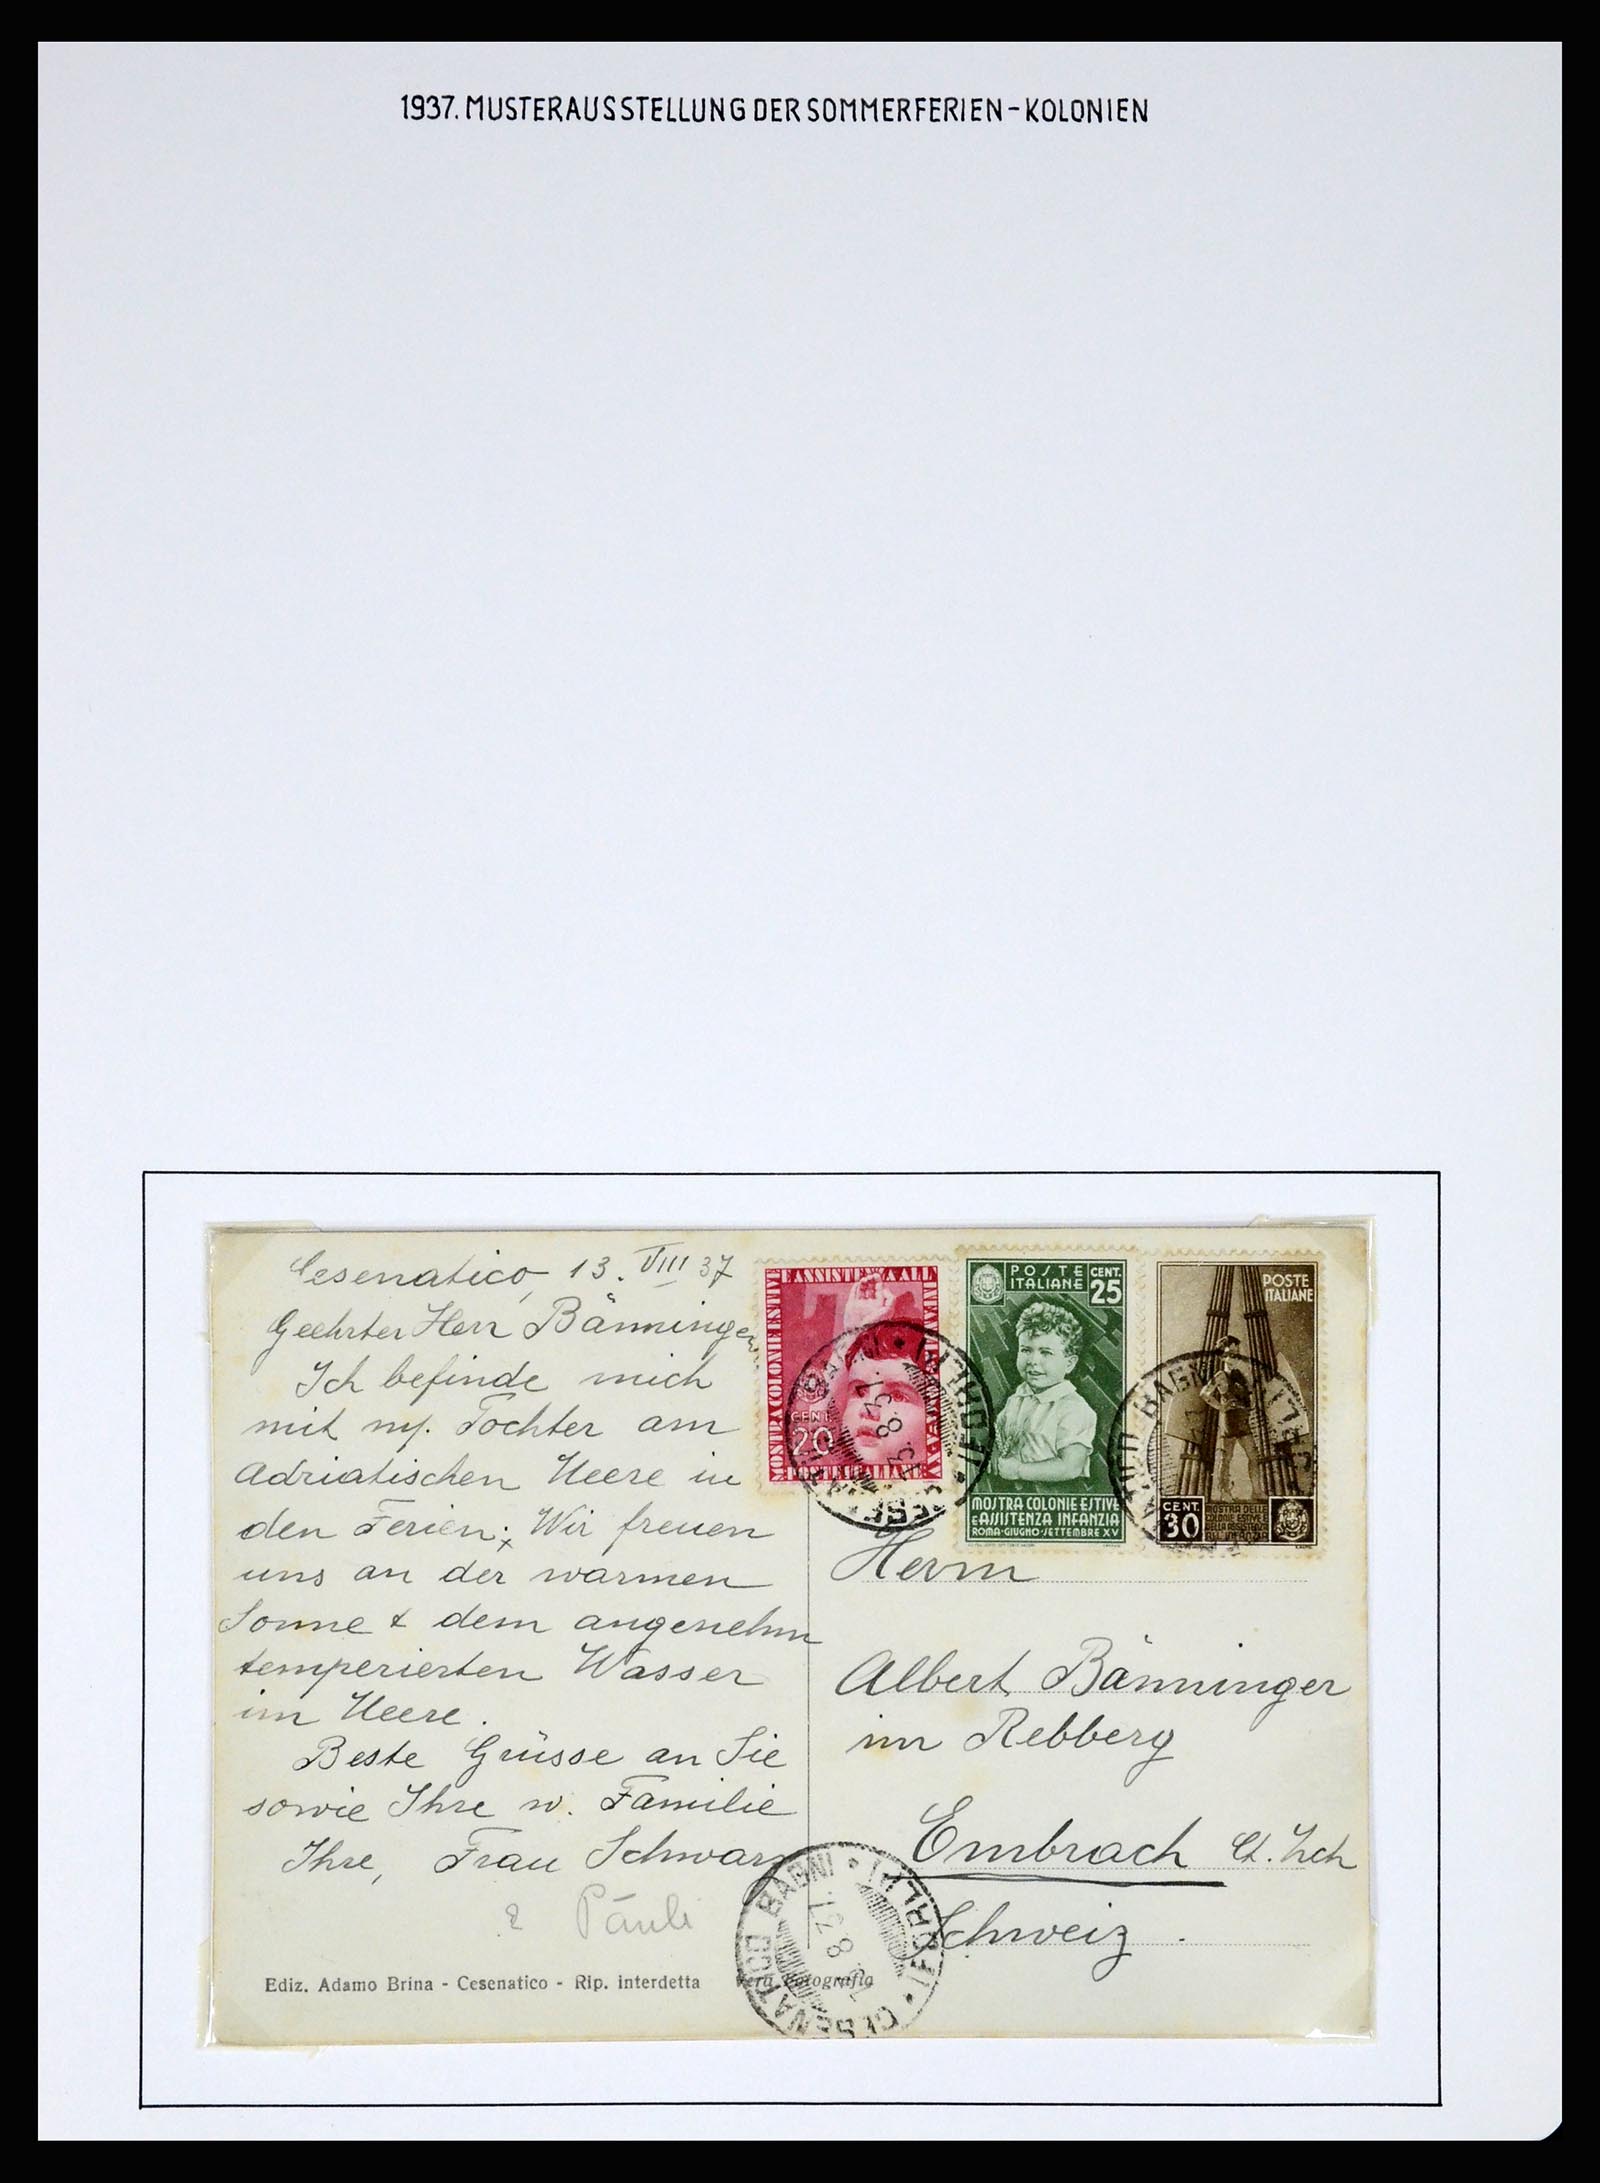 1937. MUSTERAUSSTELLUNG DER SOMMERFERIEN-KOLONIEN
Cesenatico, 13. VIII 37
Geehrter Herr Bänninger
Ich befinde mich
mit m. Tochter am
Adriatischen Meere in
den Ferien; Wir freuen
uns an der warmen
Sonne & dem angenehm
temperierten Wasser
im Meere.
Beste Grüsse an Sie
sowie Ihre w. Familie
Ihre, Frau Schwarz
& Päuli
Ediz. Adamo Brina - Cesenatico - Rip. interdetta
Vera Fotografia
MOSTRA COLONIE ESTIVE E ASSISTENZA ALL'INFANZIA
CENT
20
POSTE ITALIANE
POSTE
ITALIANE
CENT.
25
MOSTRA COLONIE ESTIVE
E ASSISTENZA INFANZIA
ROMA·GIUGNO·SETTEMBRE XV
POSTE
ITALIANE
CENT.
30
MOSTRA DELLE
COLONIE ESTIVE
CESENATICO BAGNI (FORLI)
13.8.37
CESENATICO BAGNI (FORLI)
CESENATICO BAGNI (FORLI)
8.37
Herrn
Albert Bänninger
im Rebberg
Embrach Ct. Zch
Schweiz.